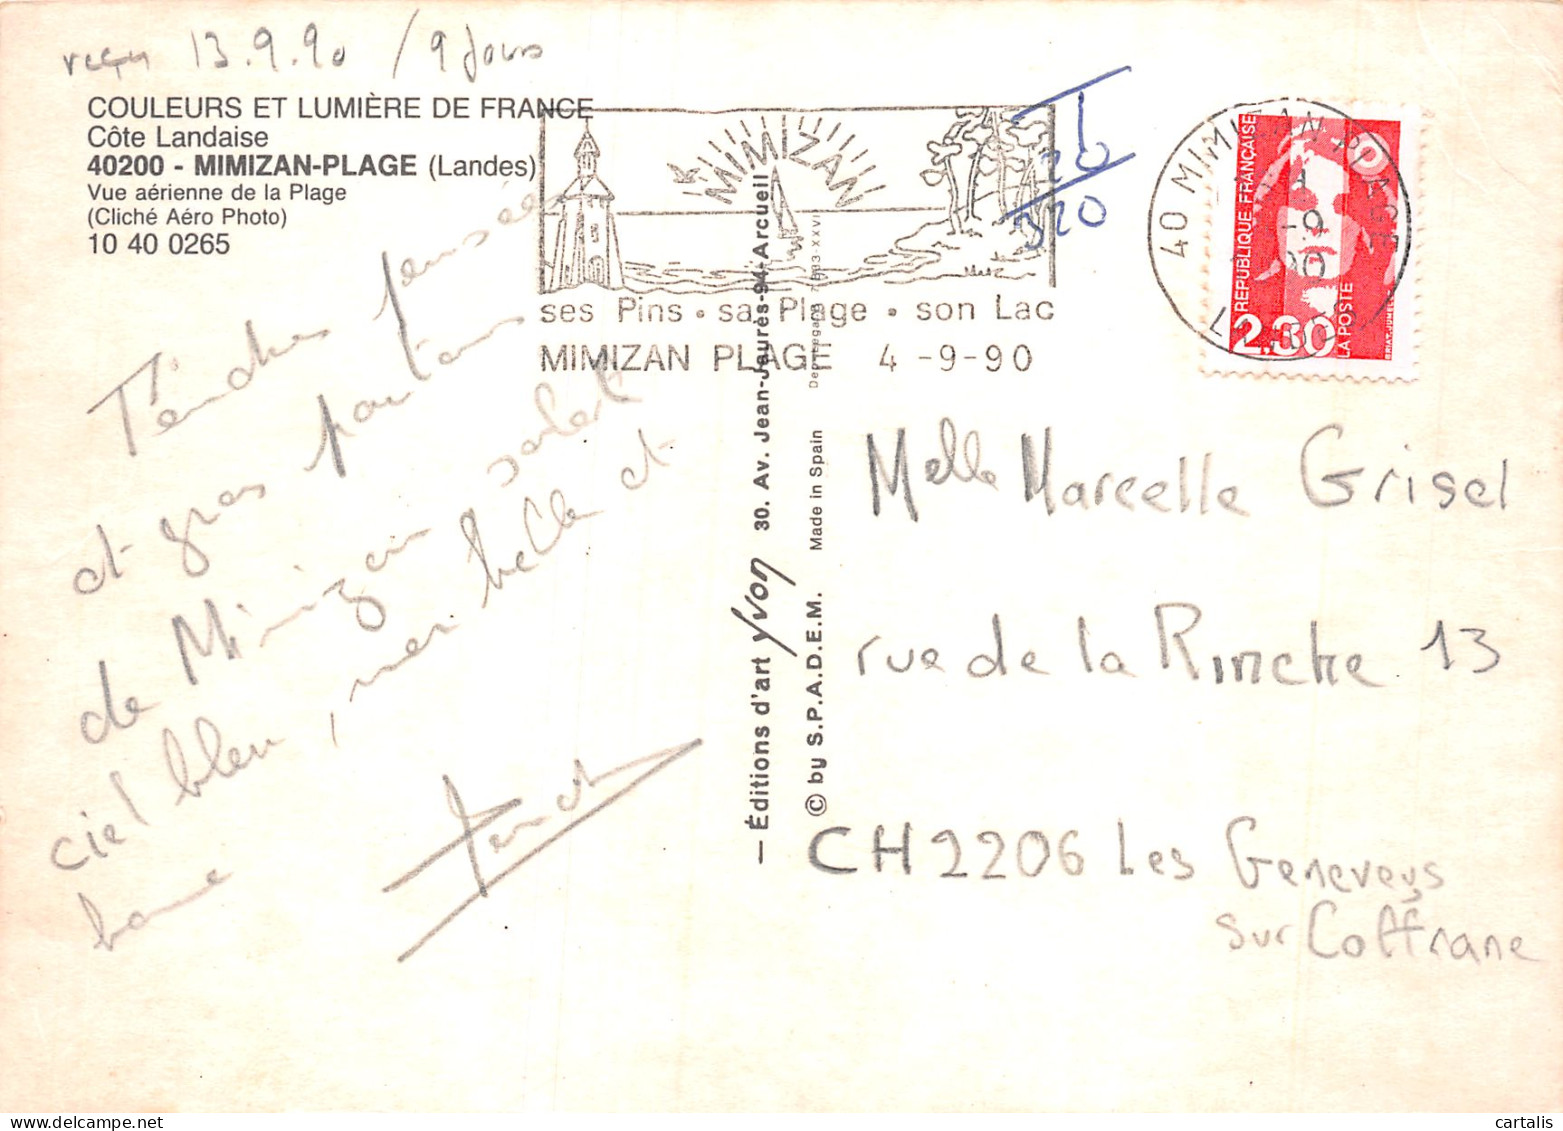 reçu 13.9.90 / 9 Jours
COULEURS ET LUMIÈRE DE FRANCE
Côte Landaise
40200 - MIMIZAN-PLAGE (Landes)
Vue aérienne de la Plage
(Cliché Aéro Photo)
10 40 0265
MIMIZAN
ses Pins • sa Plage • son Lac
MIMIZAN PLAGE 4 -9-90
T
20
320
40 MIMIZAN PLAGE
-9
90
RÉPUBLIQUE FRANÇAISE
2,30
LA POSTE
Tendres pensées
et gros
de Mimizan soleil
ciel bleu, mer belle et
bonne
— Éditions d'art Yvon 30. Av. Jean-Jaurès-94-Arcueil
© by S.P.A.D.E.M. Made in Spain
Melle Marcelle Grisel
rue de la Rinche 13
CH 2206 Les Geneveys
sur Coffrane
cartalis